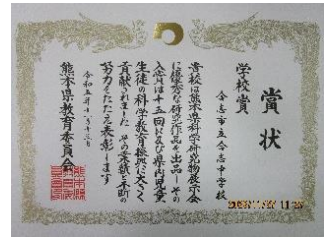 賞状
学校賞
合志市立合志中学校
貴校は熊本県科学研究物展示会
に優秀な研究作品を出品しその
入賞は十五回に及び県内児童
生徒の科学教育振興に大きく
貢献されました その業績と不断の
努力をたたえ表彰します
令和五年十一月十三日
熊本県教育委員会